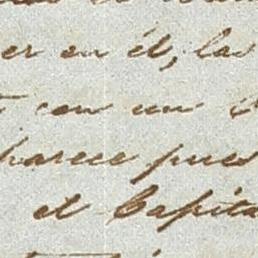 er en él, las
con un
parece pues
el Capita